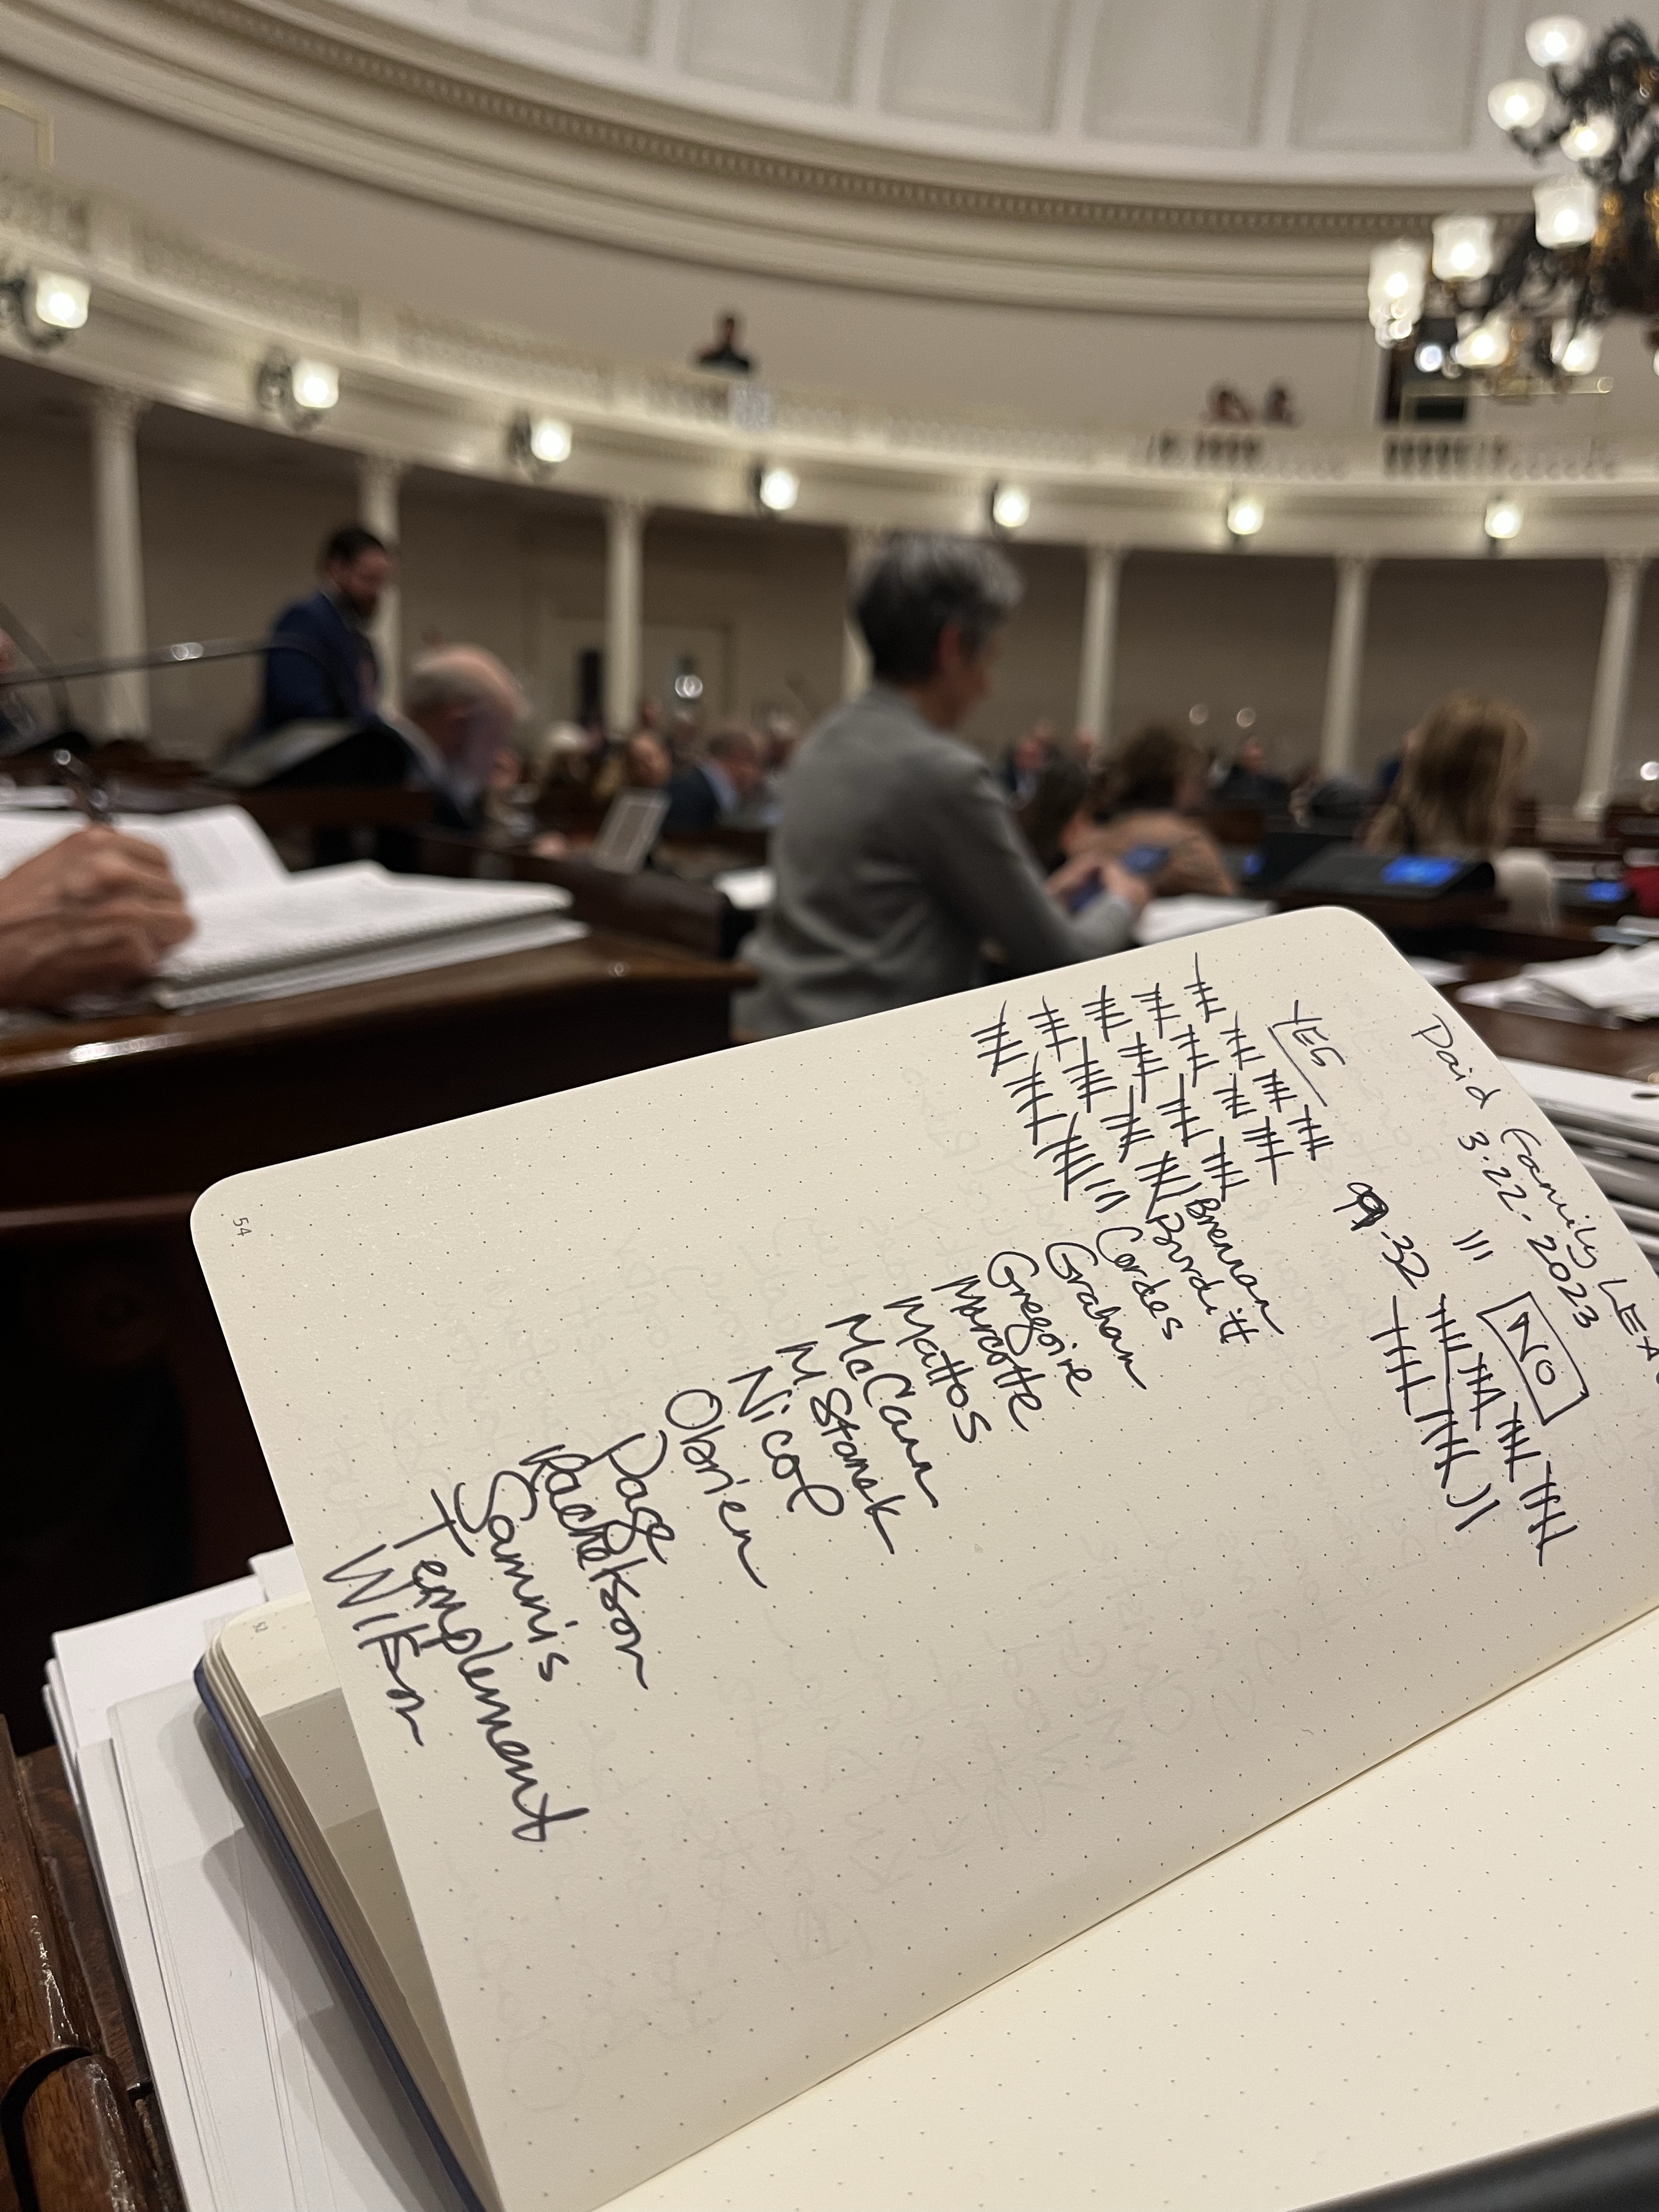 Paid Family LEA
3.22.2023
YES
NO
99-32
Brennan
Burditt
Cordes
Graham
Gregoire
Marcotte
Mattos
McCann
M Stanak
Nicol
Obrien
Page
Rachelson
Sammis
Templement
Wilson
54
52